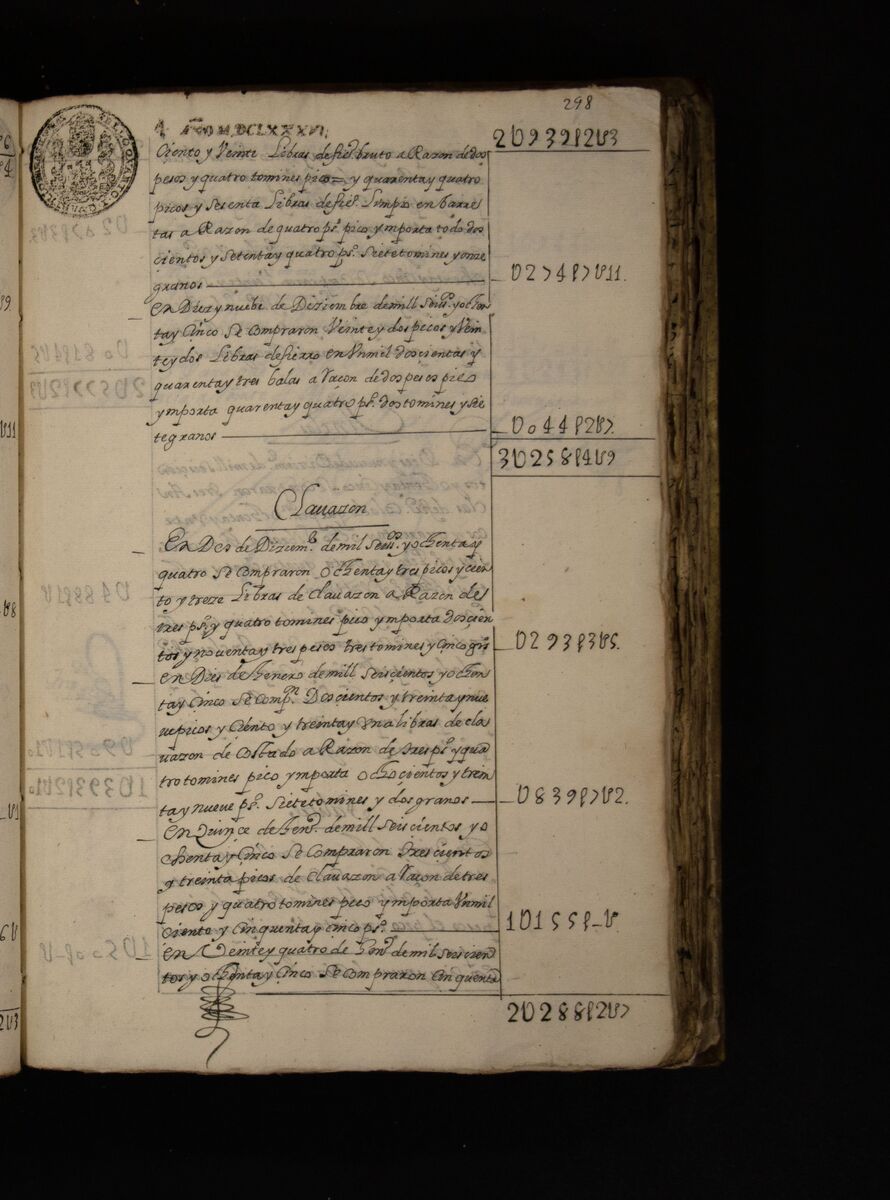 298
AÑO M,DCLXXXVI,
2U939p2U3
Ciento y Veinte Libras de fieº bruto a Razon de dos
pesos y quatro tomines pico = y quarenta y quatro
picos y Sesenta Libras de fieº Limpio en barre
tas a Razon de quatro psº pico y mporta todo dos
cientos y Setenta y quatro psº Siete tomines y onse
granos
U274p7U11.
en Diez y nuebe de Deziembre de mill Seisº y ochen
ta y Cinco Se Compraron Veinte y dos picos y Vein
te y dos Libras de fierro en Vn mil doscientas y
quarenta y tres balas a raçon de dos pesos pico
y mporta quarenta y quatro psº dos tomines y sie
te granos
U044p2U7.
3U258p4U9
Clauazon
En Dos de Diziemº de mil Seisº y ochenta y
quatro Se Compraron ochenta y tres picos y cien
to y treze Libras de Clauazon a Razon de
tres psº y quatro tomines pico y mporta Doscien
tos y nouenta y tres pesos tres tomines y Cinco grs
U293p3U5.
en Dies de Henero de mill Seiscientos y ochen
ta y Cinco Se Compºn Doscientos y treinta y nue
ue picos y Ciento y treinta y Vna libras de cla
uazon de Costado a Razon de tres psº y qua
tro tomines pico y mporta ochocientos y trein
ta y nueve psº Siete tomines y dos granos
U839p7U2.
en Quince de Henº de mill Seiscientos y o
chenta y Cinco Se Compraron trescientos
y treinta picos de Clauazon a raçon de tres
pesos y quatro tomines pico y mporta Vn mil
Ciento y Cinquenta y cinco psº
1U155p-U
en Veinte y quatro de Henº de mil Seiscien
tos y ochenta y Cinco Se Compraron Cinquenta
2U288p2U7